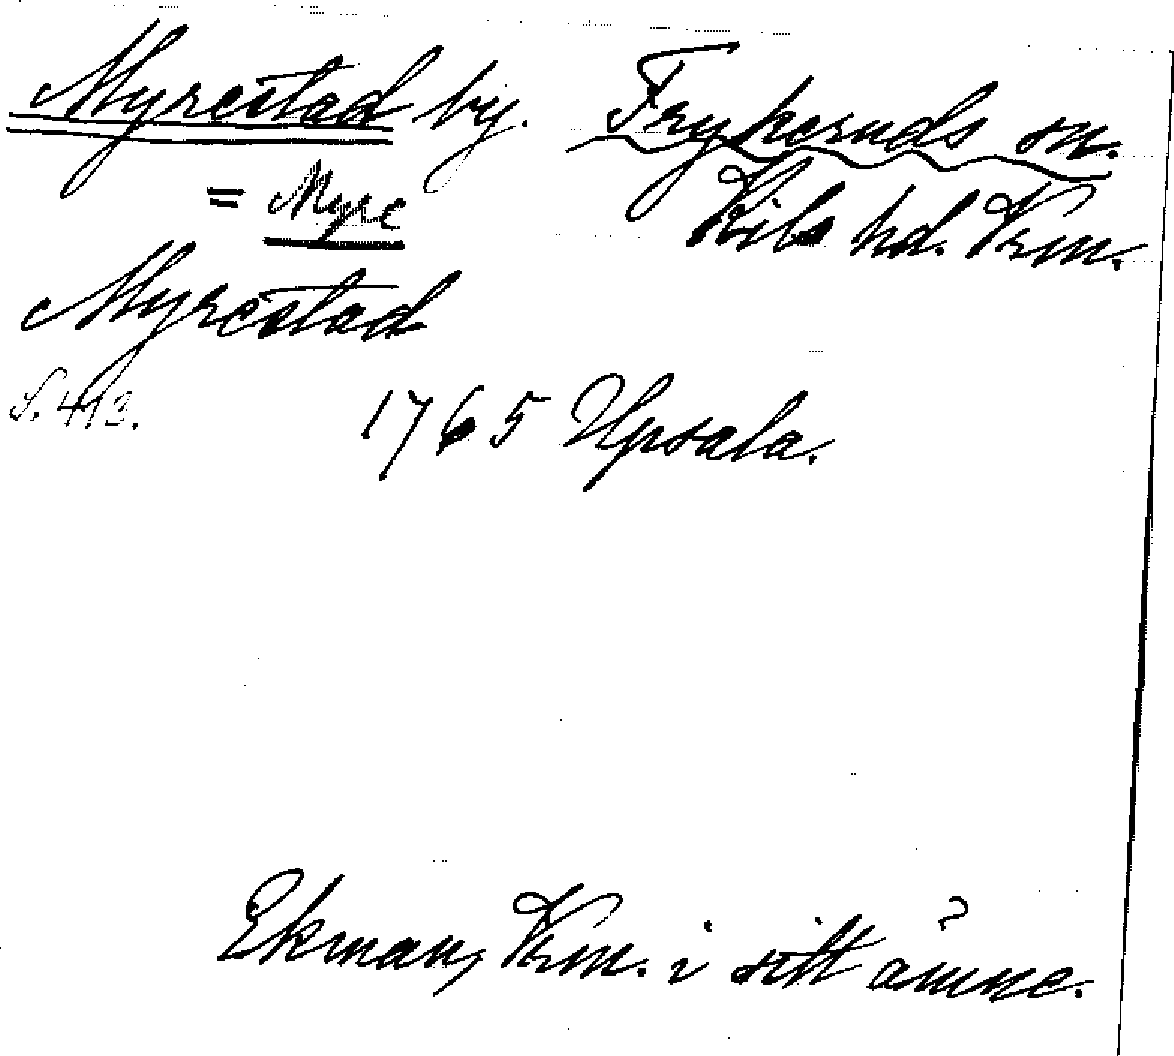 Myrestad by. Frykeruds sn.
= Myre Kils hd. Vrm.
Myrestad
S. 413. 1765 Upsala.
Ekman, Vrm. i sitt ämne.